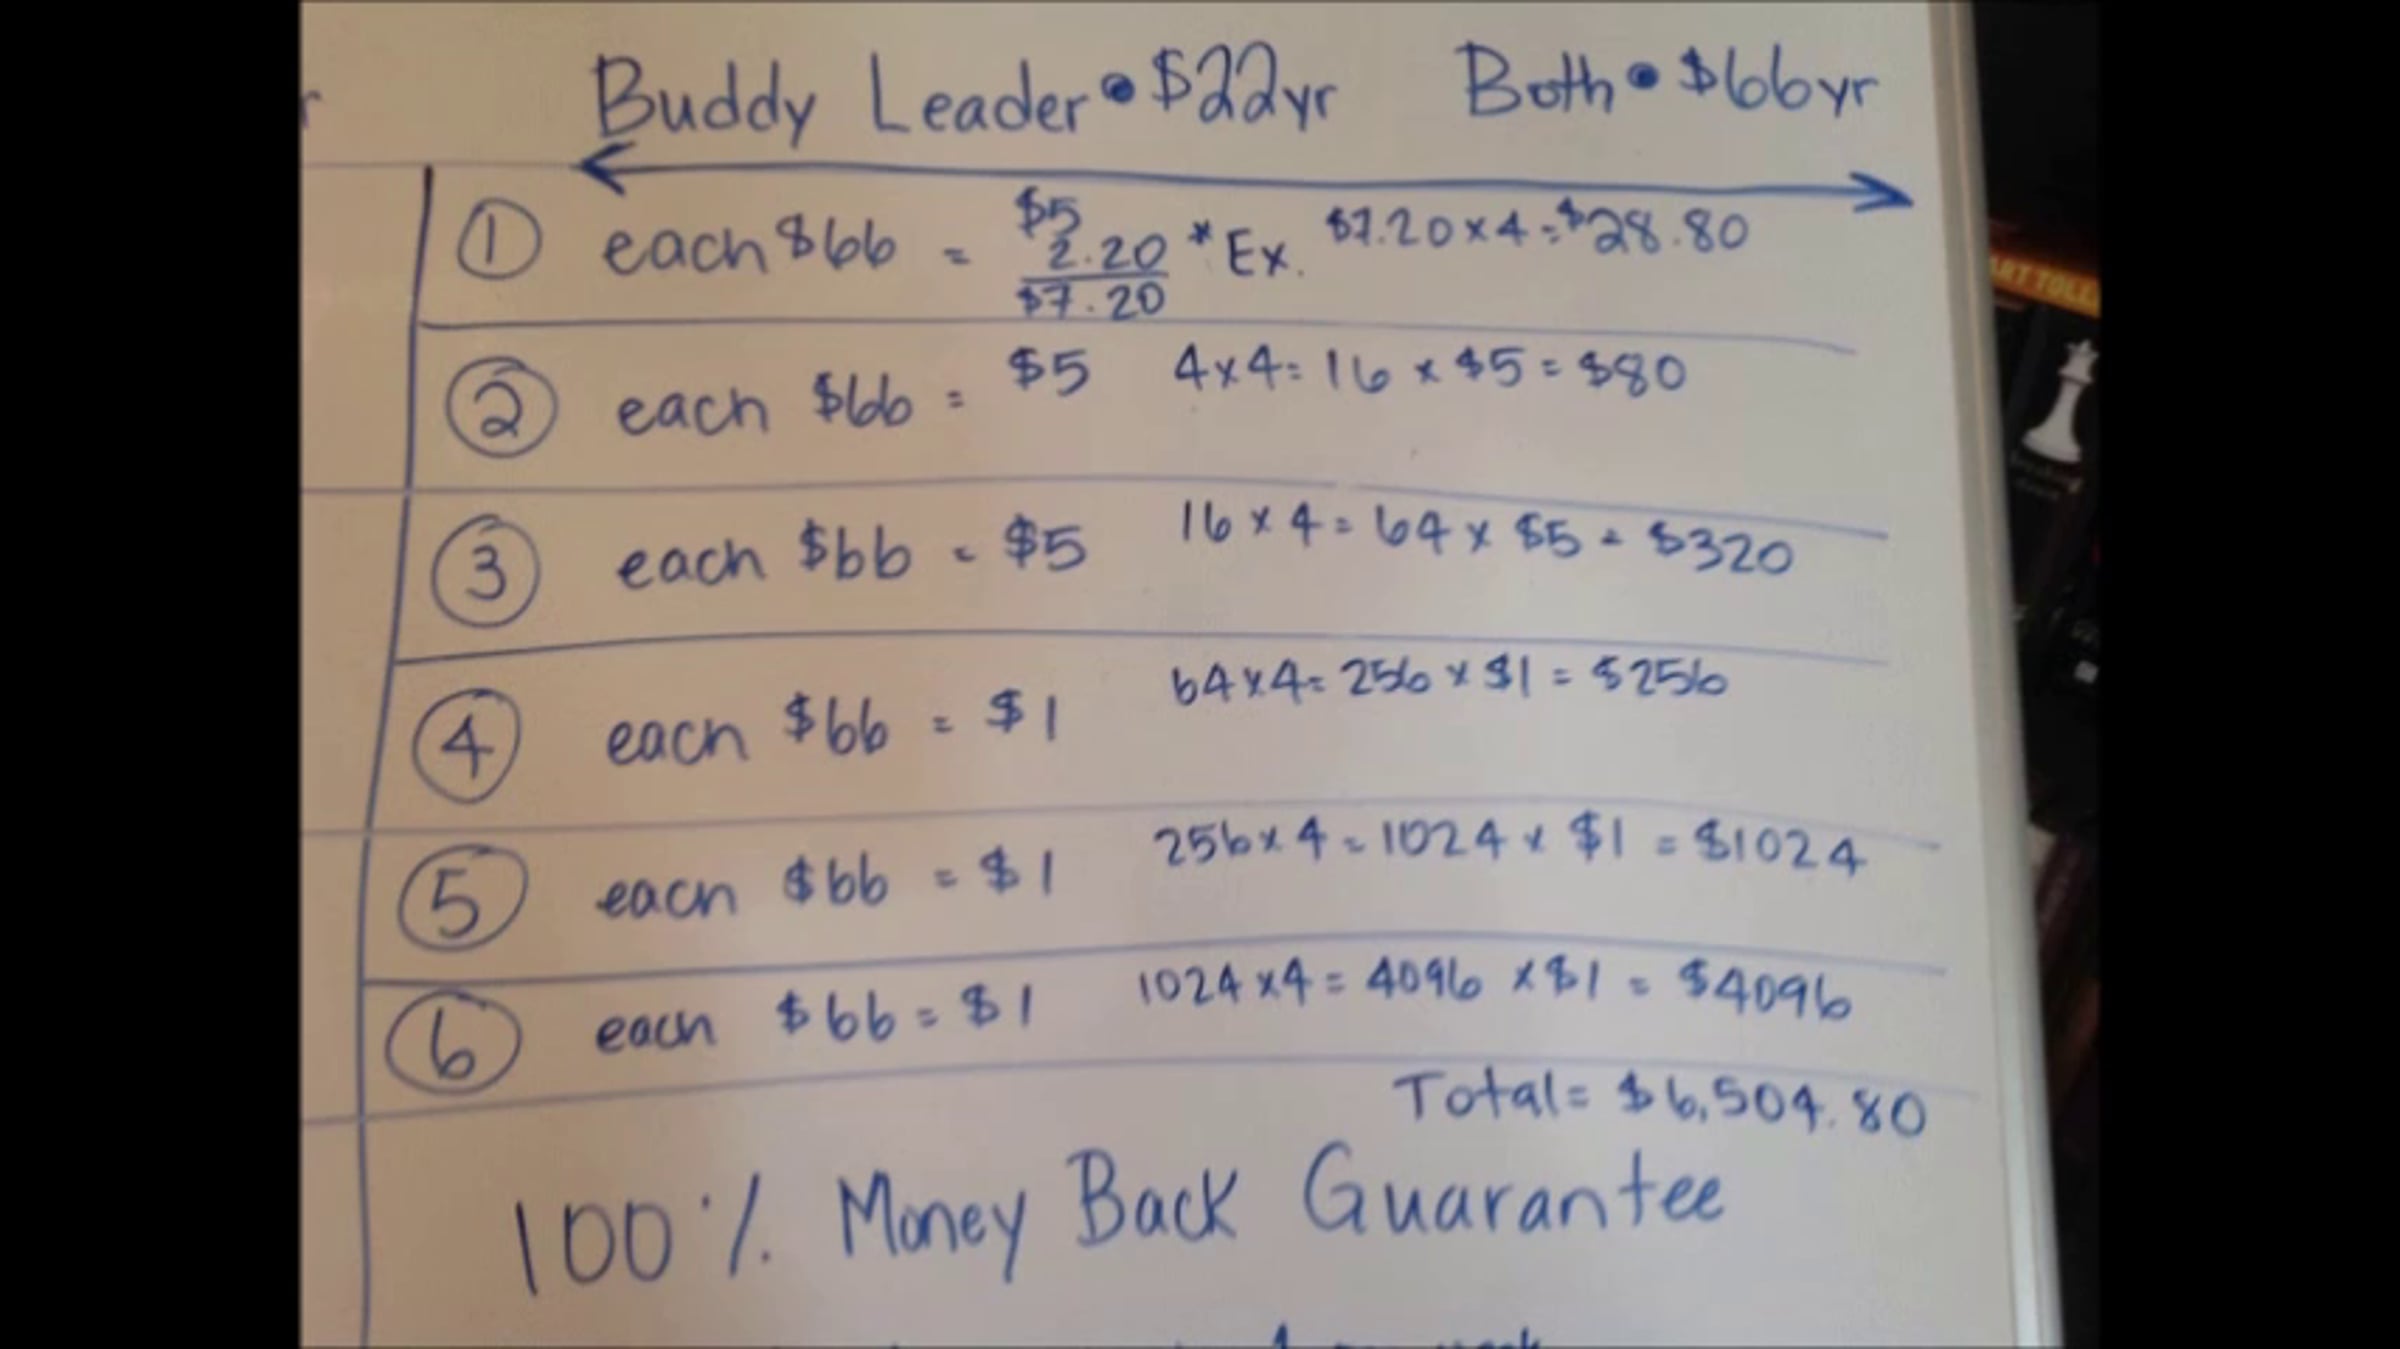 Buddy Leader • $22yr Both • $66yr
① each $66 = $5 2.20 $7.20 *Ex. $7.20 x 4 = $28.80
② each $66 = $5 4x4 = 16 x $5 = $80
③ each $66 = $5 16 x 4 = 64 x $5 = $320
④ each $66 = $1 64x4 = 256 x $1 = $256
⑤ each $66 = $1 256x4 = 1024 x $1 = $1024
⑥ each $66 = $1 1024x4 = 4096 x $1 = $4096
Total = $6,504.80
100% Money Back Guarantee